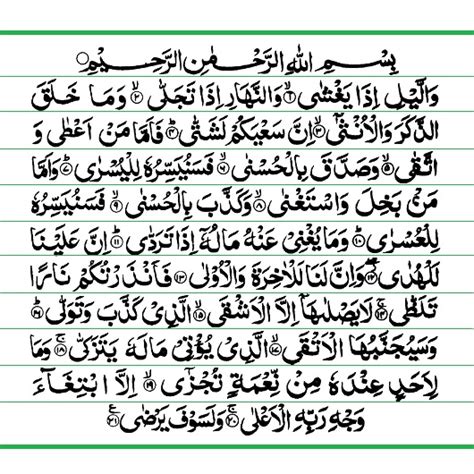 بِسْمِ اللّٰهِ الرَّحْمٰنِ الرَّحِيْمِ
وَالَّيْلِ اِذَا يَغْشٰى ۙ﴿۱﴾ وَالنَّهَارِ اِذَا تَجَلّٰى ۙ﴿۲﴾ وَمَا خَلَقَ
الذَّكَرَ وَالْاُنْثٰۤى ۙ﴿۳﴾ اِنَّ سَعْيَكُمْ لَشَتّٰى ؕ﴿۴﴾ فَاَمَّا مَنْ اَعْطٰى وَ
اتَّقٰى ۙ﴿۵﴾ وَصَدَّقَ بِالْحُسْنٰى ۙ﴿۶﴾ فَسَنُيَسِّرُهٗ لِلْيُسْرٰى ؕ﴿۷﴾ وَاَمَّا
مَنْۢ بَخِلَ وَاسْتَغْنٰى ۙ﴿۸﴾ وَكَذَّبَ بِالْحُسْنٰى ۙ﴿۹﴾ فَسَنُيَسِّرُهٗ
لِلْعُسْرٰى ؕ﴿۱۰﴾ وَمَا يُغْنِيْ عَنْهُ مَالُهٗۤ اِذَا تَرَدّٰى ؕ﴿۱۱﴾ اِنَّ عَلَيْنَا
لَلْهُدٰى ۖ﴿۱۲﴾ وَاِنَّ لَنَا لَلْاٰخِرَةَ وَالْاُوْلٰى ﴿۱۳﴾ فَاَنْذَرْتُكُمْ نَارًا
تَلَظّٰى ۚ﴿۱۴﴾ لَا يَصْلٰىهَاۤ اِلَّا الْاَشْقَى ۙ﴿۱۵﴾ الَّذِيْ كَذَّبَ وَتَوَلّٰى ؕ﴿۱۶﴾
وَسَيُجَنَّبُهَا الْاَتْقَى ۙ﴿۱۷﴾ الَّذِيْ يُؤْتِيْ مَالَهٗ يَتَزَكّٰى ۚ﴿۱۸﴾ وَمَا
لِاَحَدٍ عِنْدَهٗ مِنْ نِّعْمَةٍ تُجْزٰۤى ۙ﴿۱۹﴾ اِلَّا ابْتِغَآءَ
وَجْهِ رَبِّهِ الْاَعْلٰى ۚ﴿۲۰﴾ وَلَسَوْفَ يَرْضٰى ﴿۲۱﴾